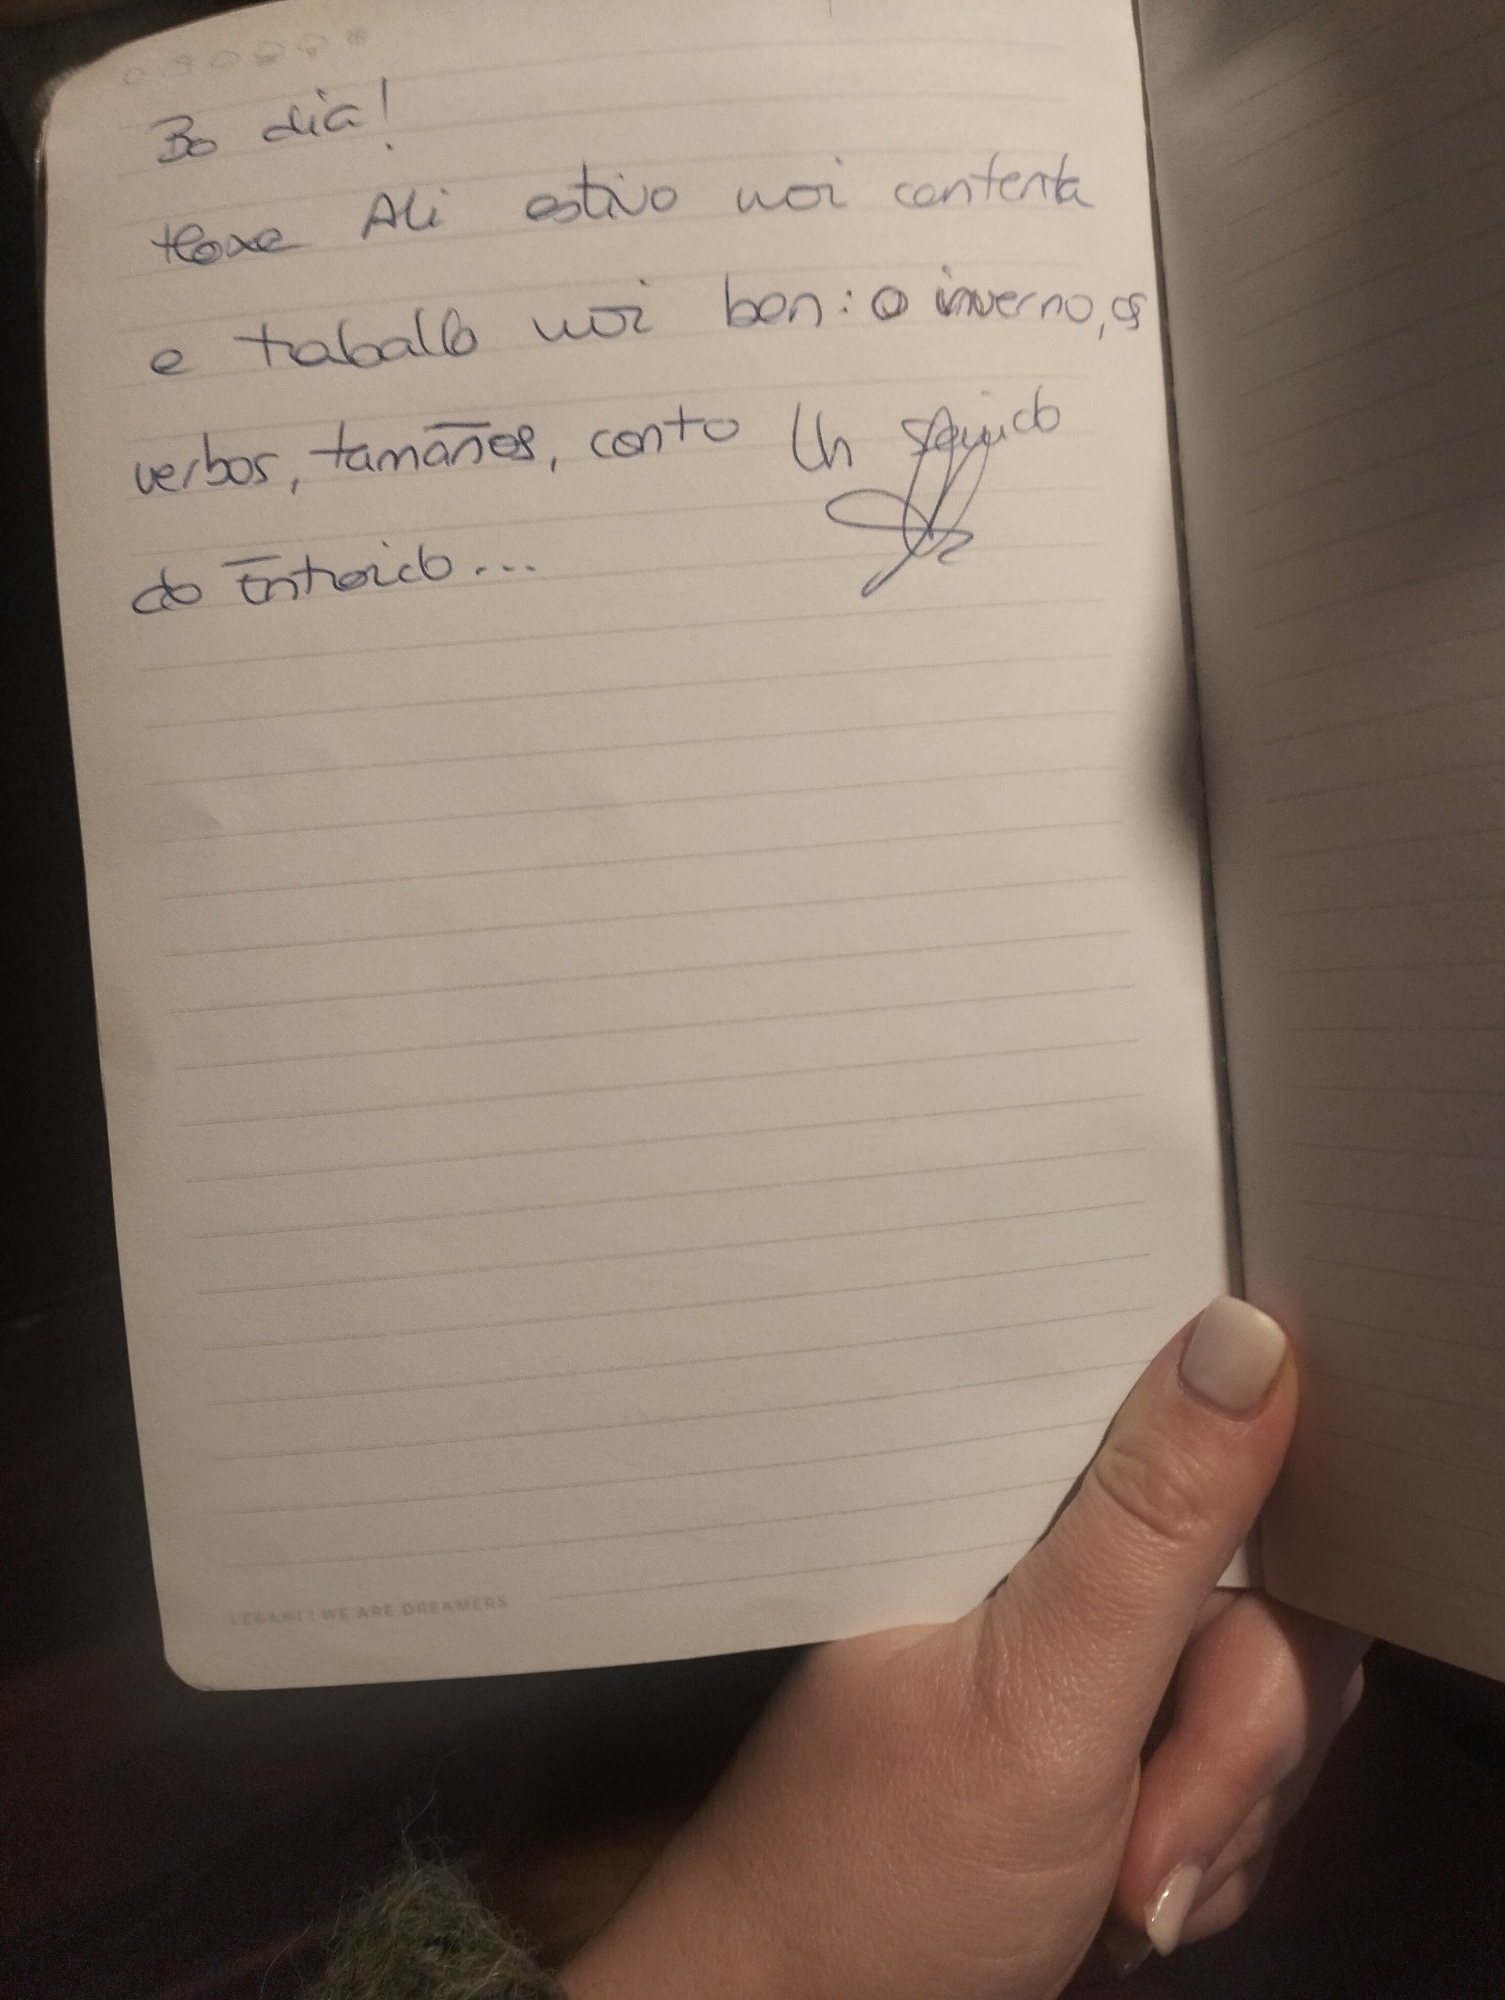 Bo dia!
Hoxe Ali estivo moi contenta
e traballo moi ben: o inverno, os
verbos, tamaños, conto
Un saúdo
do Entroido...
LEGAMI | WE ARE DREAMERS